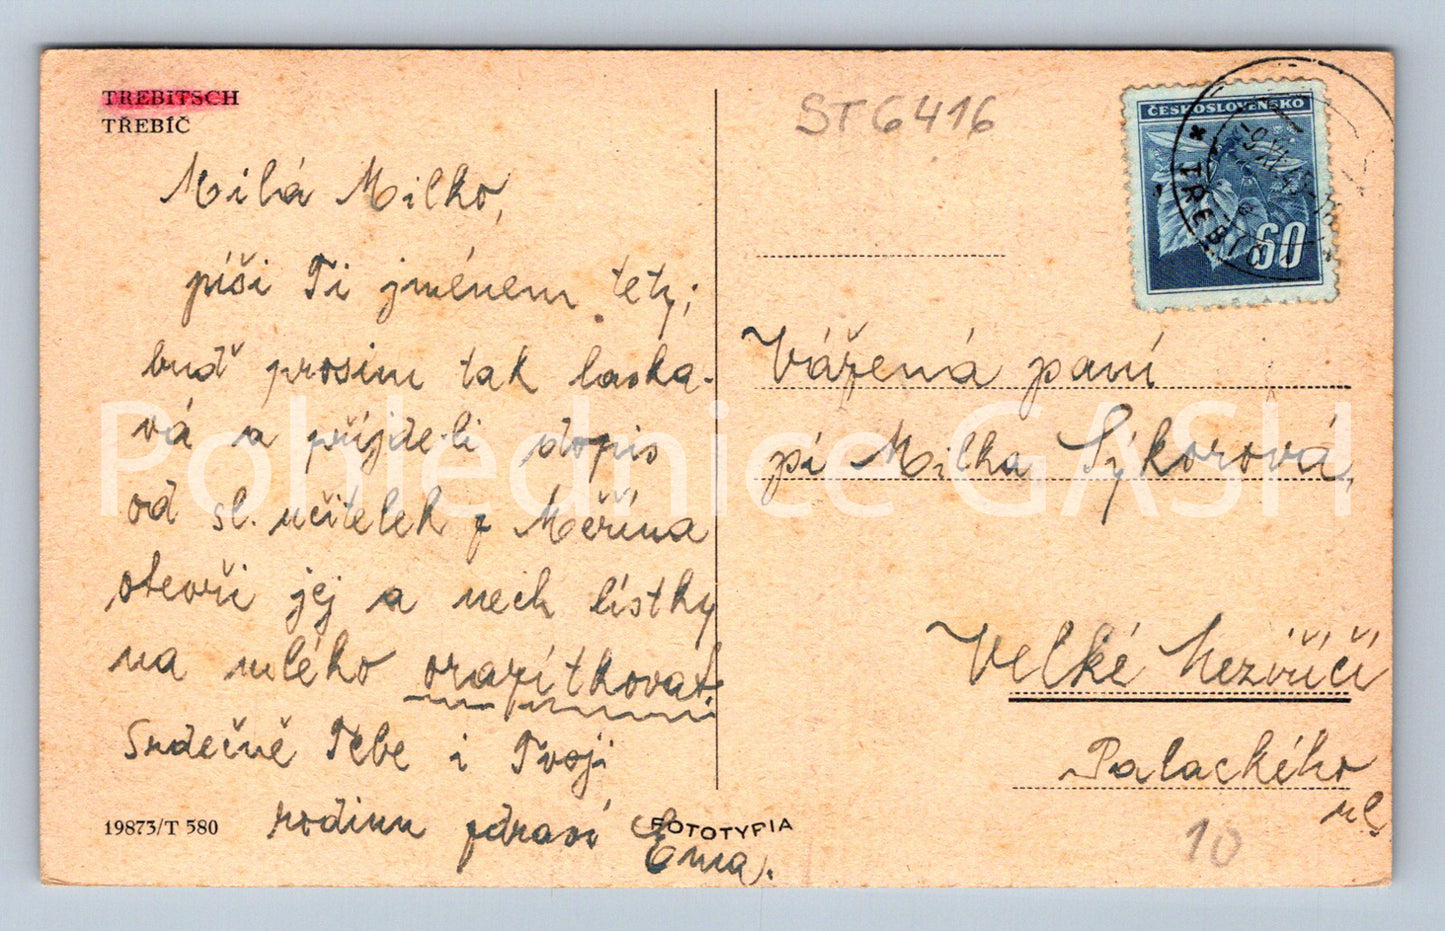 TREBITSCH
TŘEBÍČ
Milá Milko,
píši Ti jménem tety;
buď prosím tak laska-
vá a přijde-li dopis
od sl. učitelek z Měřína
otevři jej a nech lístky
na mléko orazítkovat.
Srdečně Tebe i Tvoji
rodinu zdraví
Ema.
19873/T 580
FOTOTYPIA
ST 6416
ČESKOSLOVENSKO
60
* TŘEBÍČ
-9.XI.45-
Vážená paní
pí Milka Sýkorová,
Velké Meziříčí
Palackého
ul.
10
Pohlednice GASH